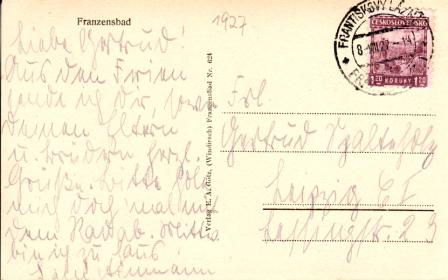 Franzensbad
1927
Liebe Gertrud!
Aus den Ferien
sende ich Dir, sowie
Deinen Eltern
u. Brüdern herzl.
Grüße. Bitte
mich doch mal
dem
bin ich zu Haus
Verlag E. A. Götz, (Windrosch) Franzensbad Nr. 624
FRANTIŠKOVY LÁZNĚ
8 VIII 27
ČESKOSLOVENSKO
1.20 KORUNY 1.20
Frl.
Gertrud Spalteholz
Leipzig C I
Lessingstr. 23